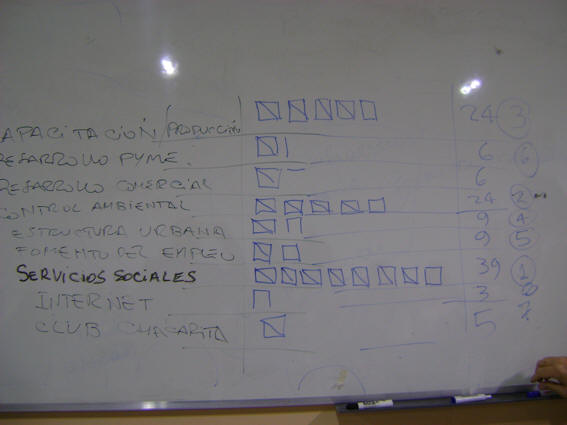 APACITACION / PRODUCCIÓN 24 3
DESARROLLO PYME. 6 6
DESARROLLO COMERCIAL 6
CONTROL AMBIENTAL 24 2
ESTRUCTURA URBANA 9 4
FOMENTO DEL EMPLEO 9 5
SERVICIOS SOCIALES 39 1
INTERNET 3 8
CLUB CHACARITA 5 7